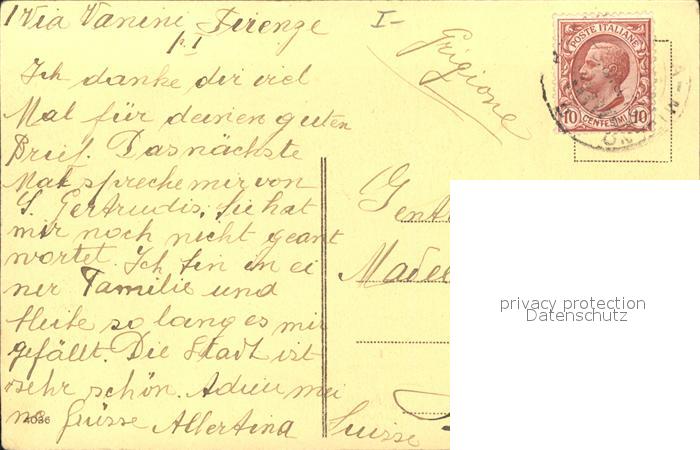 1 Via Vanini Firenze
I-
Grigione
POSTE ITALIANE
10 CENTESIMI 10
Ich danke dir viel
Mal für deinen guten
Brief. Das nächste
Mal spreche mir von
S. Gertrudis, sie hat
mir noch nicht geant
wortet. Ich bin in ei
ner Familie und
bleibe so lang es mir
gefällt. Die Stadt ist
sehr schön. Adieu mei
ne Grüsse Albertina
4036
Gent
Madel
Suisse
privacy protection
Datenschutz